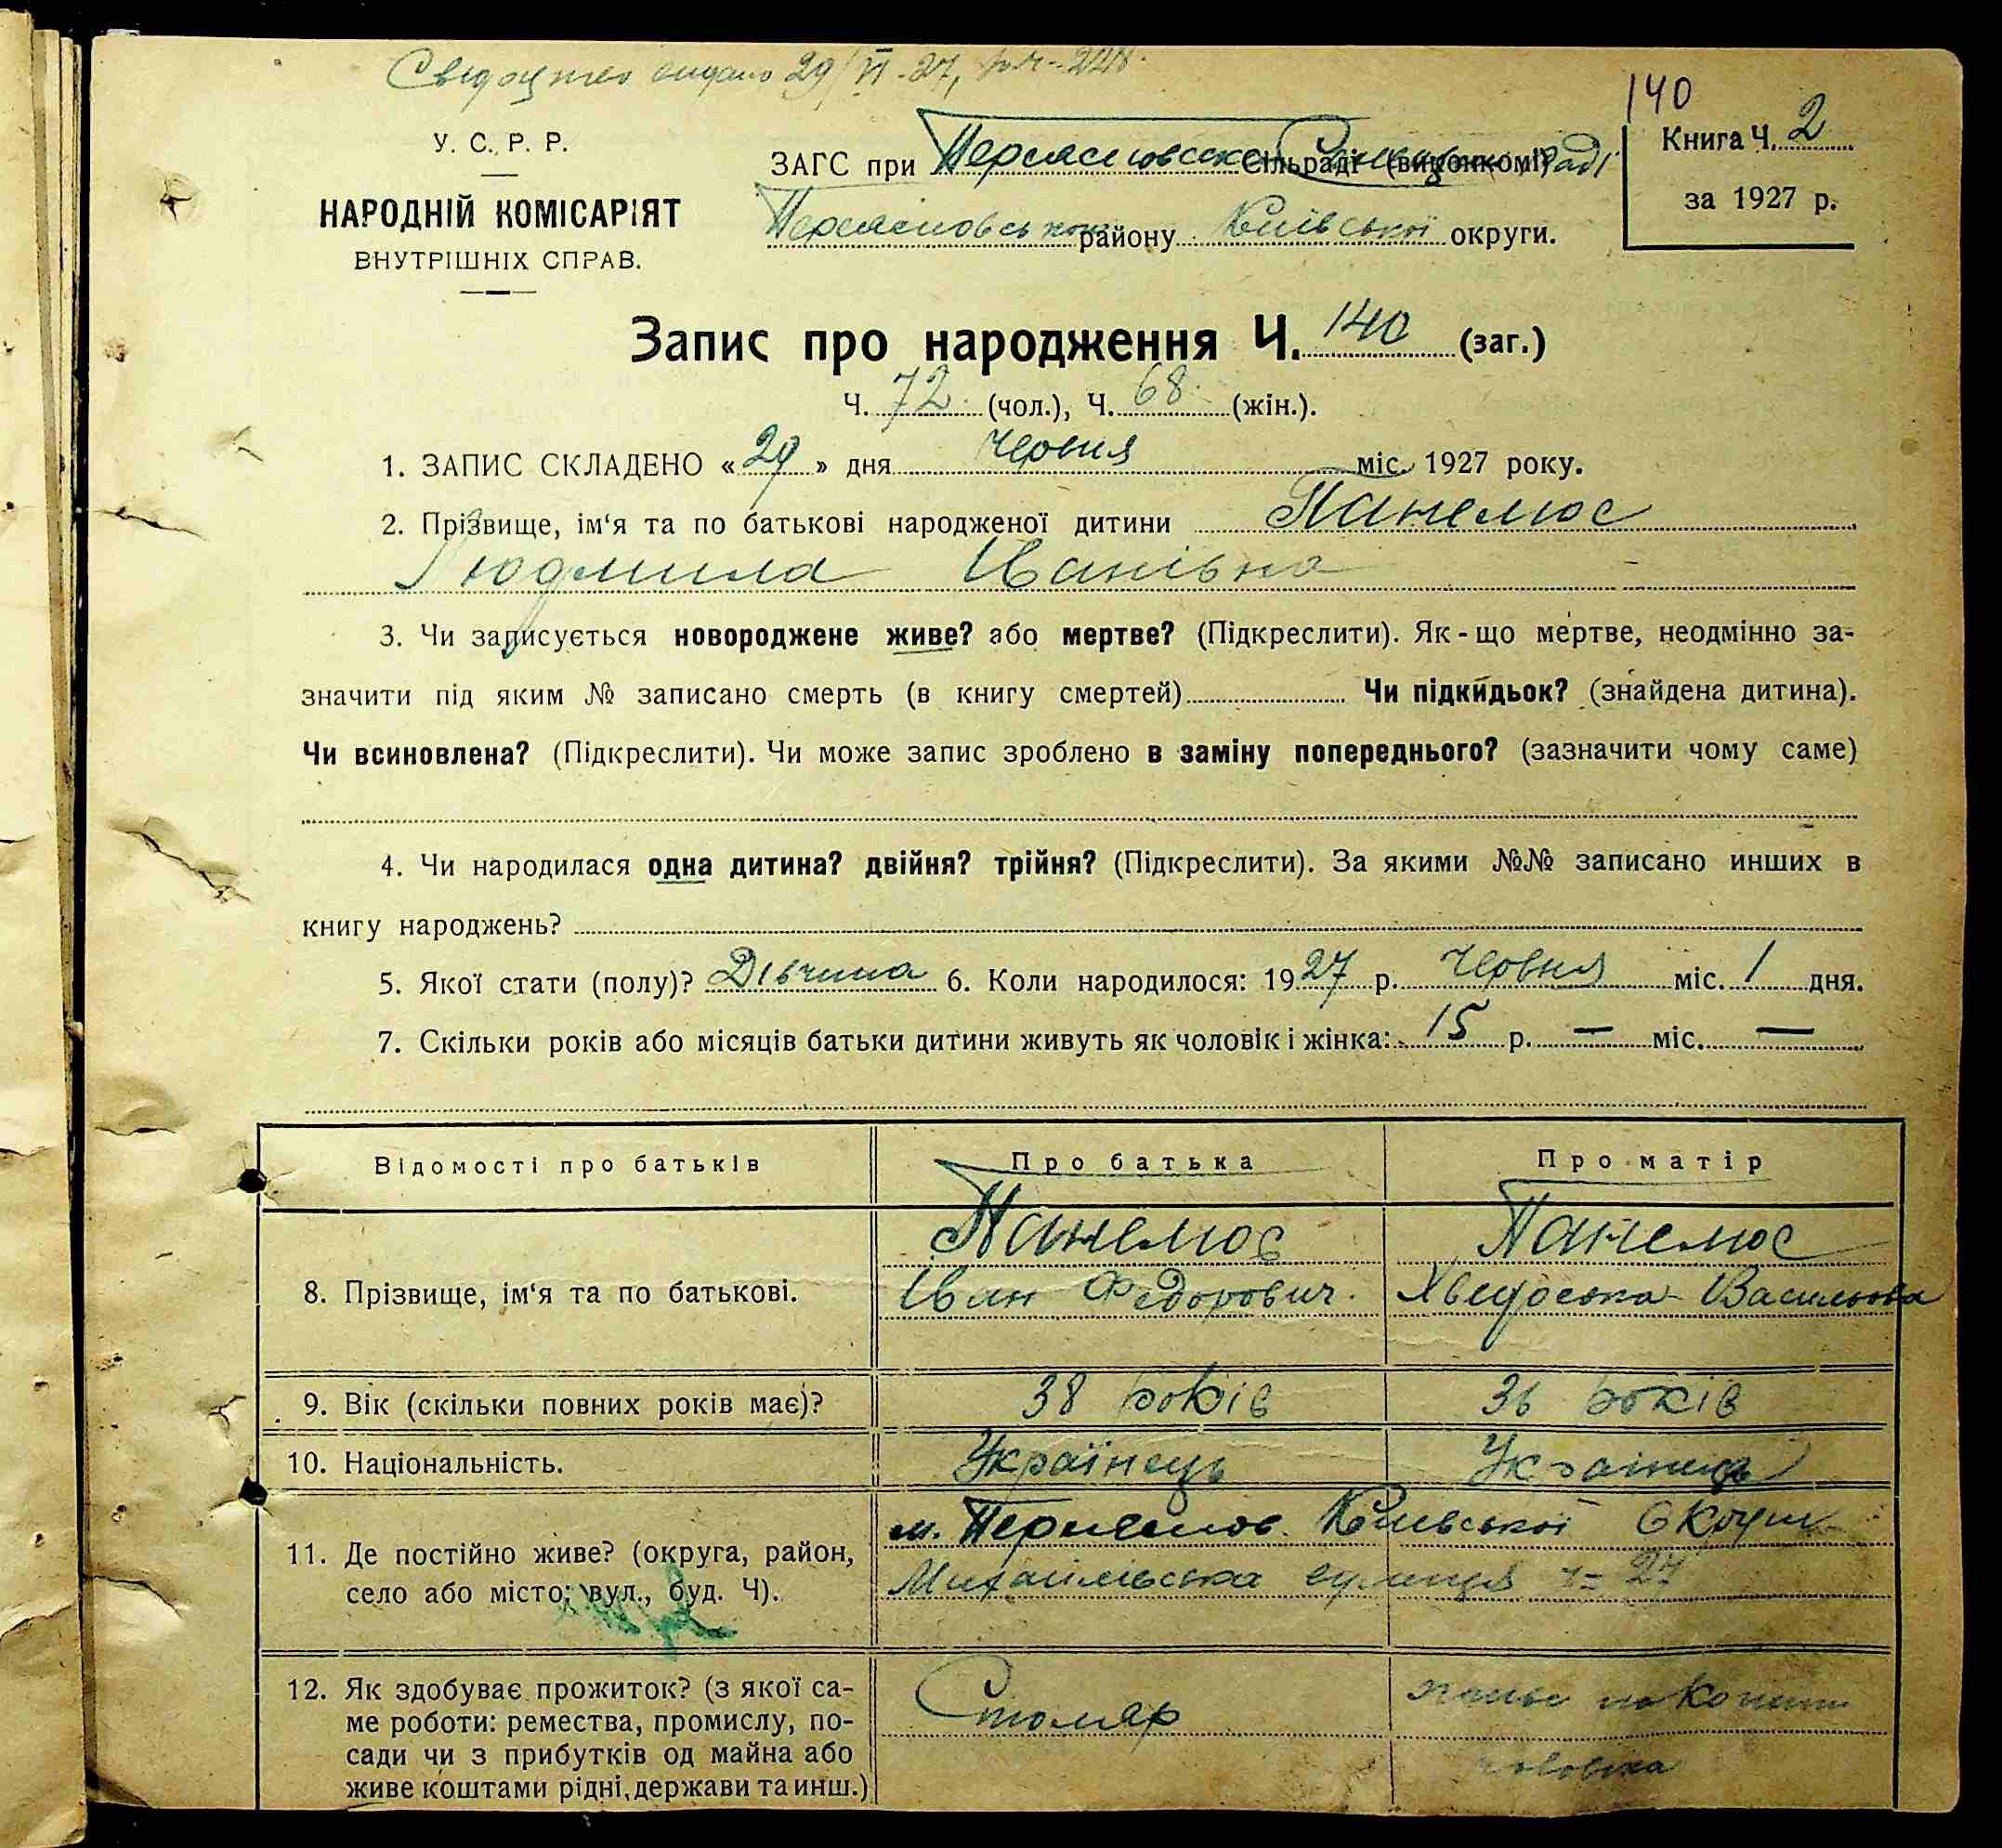 Свідоцтво видано 29/VI-27,
140
У. С. Р. Р.
НАРОДНІЙ КОМІСАРІЯТ
ВНУТРІШНІХ СПРАВ.
ЗАГС при Переяславській Сільраді (виконкомі)
Переяславського району Київської округи.
Книга Ч. 2
за 1927 р.
Запис про народження Ч. 140 (заг.)
Ч. 72 (чол.), Ч. 68 (жін.).
1. ЗАПИС СКЛАДЕНО «29» дня Червня міс. 1927 року.
2. Прізвище, ім'я та по батькові народженої дитини Панелюс
Людмила Іванівна
3. Чи записується новороджене живе? або мертве? (Підкреслити). Як-що мертве, неодмінно за-
значити під яким № записано смерть (в книгу смертей) Чи підкидьок? (знайдена дитина).
Чи всиновлена? (Підкреслити). Чи може запис зроблено в заміну попереднього? (зазначити чому саме)
4. Чи народилася одна дитина? двійня? трійня? (Підкреслити). За якими №№ записано инших в
книгу народжень?
5. Якої стати (полу)? Дівчина 6. Коли народилося: 1927 р. Червня міс. 1 дня.
7. Скільки років або місяців батьки дитини живуть як чоловік і жінка: 15 р. — міс. —
Відомості про батьків Про батька Про матір
8. Прізвище, ім'я та по батькові.
Панелюс
Іван Федорович.
Панелюс
Хведоська Васильовна
9. Вік (скільки повних років має)? 38 років 36 років
10. Національність. Українець Українець
11. Де постійно живе? (округа, район,
село або місто; вул., буд. Ч).
м. Переяслов. Київської Округи
Михайлівська вулиця ч= 27
12. Як здобуває прожиток? (з якої са-
ме роботи: ремества, промислу, по-
сади чи з прибутків од майна або
живе коштами рідні, держави та инш.)
Столяр
чоловіка